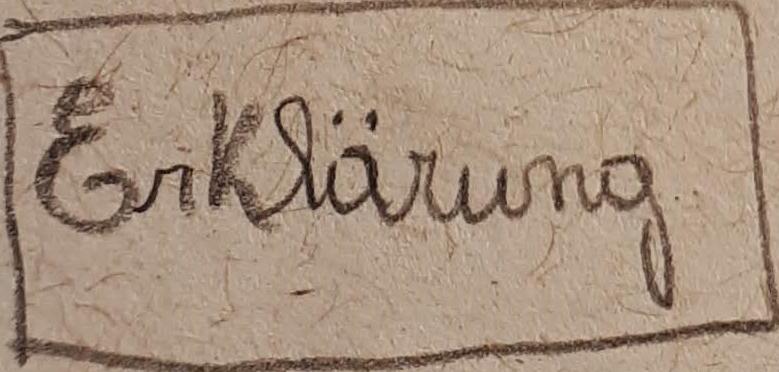 Erklärung